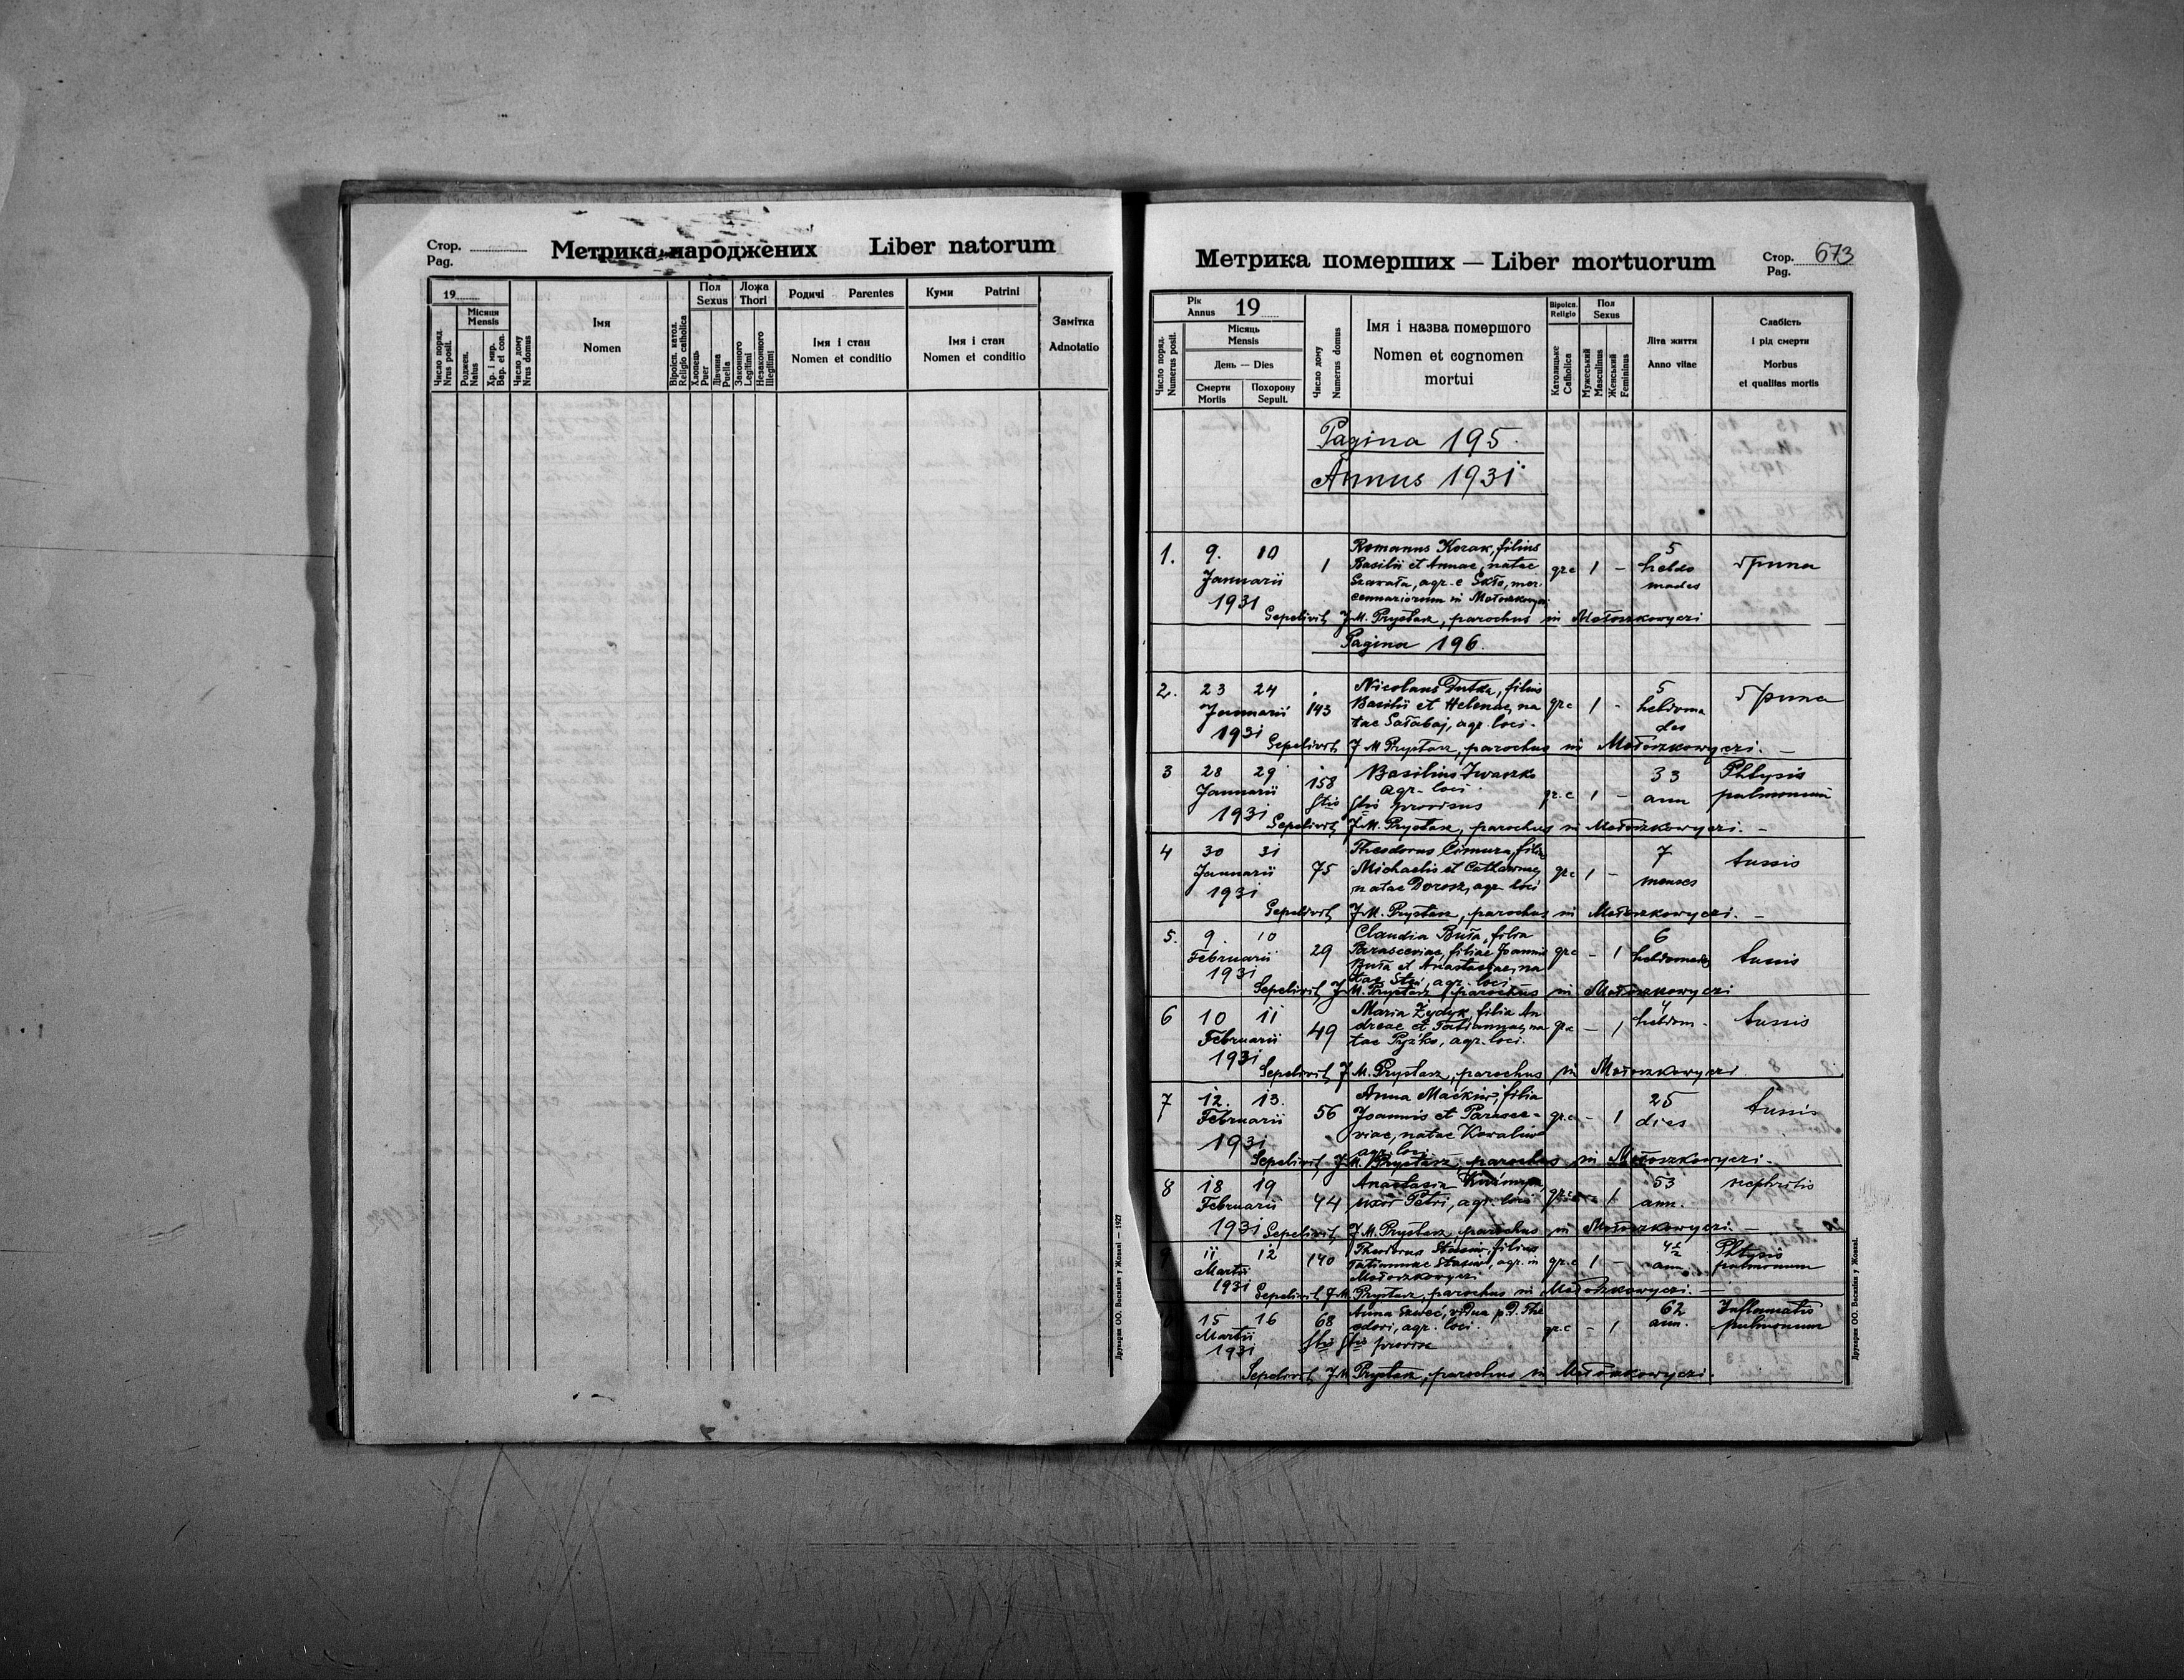 Стор.
Pag.
Метрика народжених Liber natorum
19
Число поряд.
Nrus posit.
Місяця
Mensis
Роджен.
Natus
Хр. і мир.
Bap. et con.
Число дому
Nrus domus
Імя
Nomen
Віроісп. катол.
Religio catholica
Пол
Sexus
Хлопець
Puer
Дівчина
Puella
Ложа
Thori
Законного
Legitimi
Незаконного
Illegitimi
Родичі Parentes
Імя і стан
Nomen et conditio
Куми Patrini
Імя і стан
Nomen et conditio
Замітка
Adnotatio
Друкарня ОО. Василіян у Жовкві — 1927
Метрика померших — Liber mortuorum
Стор. 673
Pag.
Число поряд.
Numerus posit.
Рік
Annus 19
Місяць
Mensis
День — Dies
Смерти
Mortis
Похорону
Sepult.
Число дому
Numerus domus
Імя і назва помершого
Nomen et cognomen
mortui
Віроісп.
Religio
Католицьке
Catholica
Пол
Sexus
Мужеський
Masculinus
Женський
Femininus
Літа життя
Anno vitae
Слабість
і рід смерти
Morbus
et qualitas mortis
Pagina 195.
Annus 1931
1. 9. 10 1 Romanus Kozak, filius
Basilii et Annae, natae
agr. e Skło, mer-
cennariorum in
Januarii
1931
gr.c 1 – 5
hebdo
mades
Sepelivit J.M. Prystasz, parochus in Mołoszkowyczi
Pagina 196.
2. 23 24 143 Nicolaus Dutka, filius
Basilii et Helenae, na
tae Sałabaj, agr. loci.
Januarii
1931
gr.c 1 - 5
hebdoma
des
Sepelivit J M Prystasz, parochus in Mołoszkowyczi. –
3 28 29 158 Basilius Iwaszko
agr. loci
provisus
Januarii
1931
gr.c 1 – 33
ann
Phtysis
pulmonum
Sepelivit J.M. Prystasz, parochus in Mołoszkowyczi. –
4 30 31 75 Theodorus filius
Michaelis et Catharinae,
natae Dorosz, agr. loci
Januarii
1931
gr.c 1 – 7
menses
tussis
Sepelivit J.M. Prystasz, parochus in Mołoszkowyczi. –
5. 9. 10 29 Claudia Buła, filia
Parasceviae, filiae Joannis
Buła et Anastasiae, na
tae agr. loci
Februarii
1931
gr.c – 1 6
hebdomades
tussis
Sepelivit J.M. Prystasz, parochus in Mołoszkowyczi
6 10 11 49 Maria Żydyk, filia An
dreae et Tatiannae, na
tae Pyżko, agr. loci.
Februarii
1931
gr.c – 1 4
hebdom.
tussis
Sepelivit J M. Prystasz, parochus in Mołoszkowyczi
7 12. 13. 56 Anna Maćkiw, filia
Joannis et Parasce-
viae, natae Kowaliw
agr. loci
Februarii
1931
gr.c – 1 25
dies
tussis
Sepelivit J.M. Prystasz, parochus in Mołoszkowyczi.
8 18 19 44 Anastasia
uxor Petri, agr. loci
Februarii
1931
1 53
ann.
nephritis
Sepelivit J.M. Prystasz, parochus in Mołoszkowyczi. –
9 11 12 140 Theodorus Stasiw, filius
Tatiannae Stasiw, agr. in
Mołoszkowyczi
Martii
1931
gr.c 1 – 4½
ann
Phtysis
pulmonum
Sepelivit J.M. Prystasz, parochus in Mołoszkowyczi. –
15 16 68 Anna Szwec, vidua p.d. The
odori, agr. loci.
provisa
Martii
1931
gr.c – 1 62
ann.
Inflamatio
pulmonum
Sepelivit J.M. Prystasz, parochus in Mołoszkowyczi.
Друкарня ОО. Василіян у Жовкві.